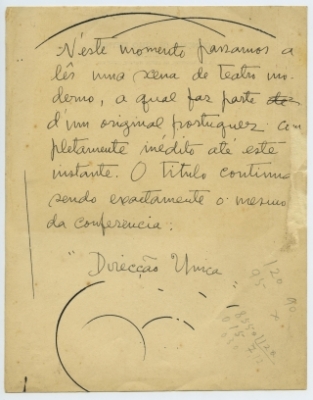 N'este momento passamos a
lêr uma scena de teatro mo-
derno, a qual faz parte do
d'um original portuguez com-
pletamente inedito até este
instante. O titulo continua
sendo exactamente o mesmo
da conferencia:
"Direcção Unica
120
95